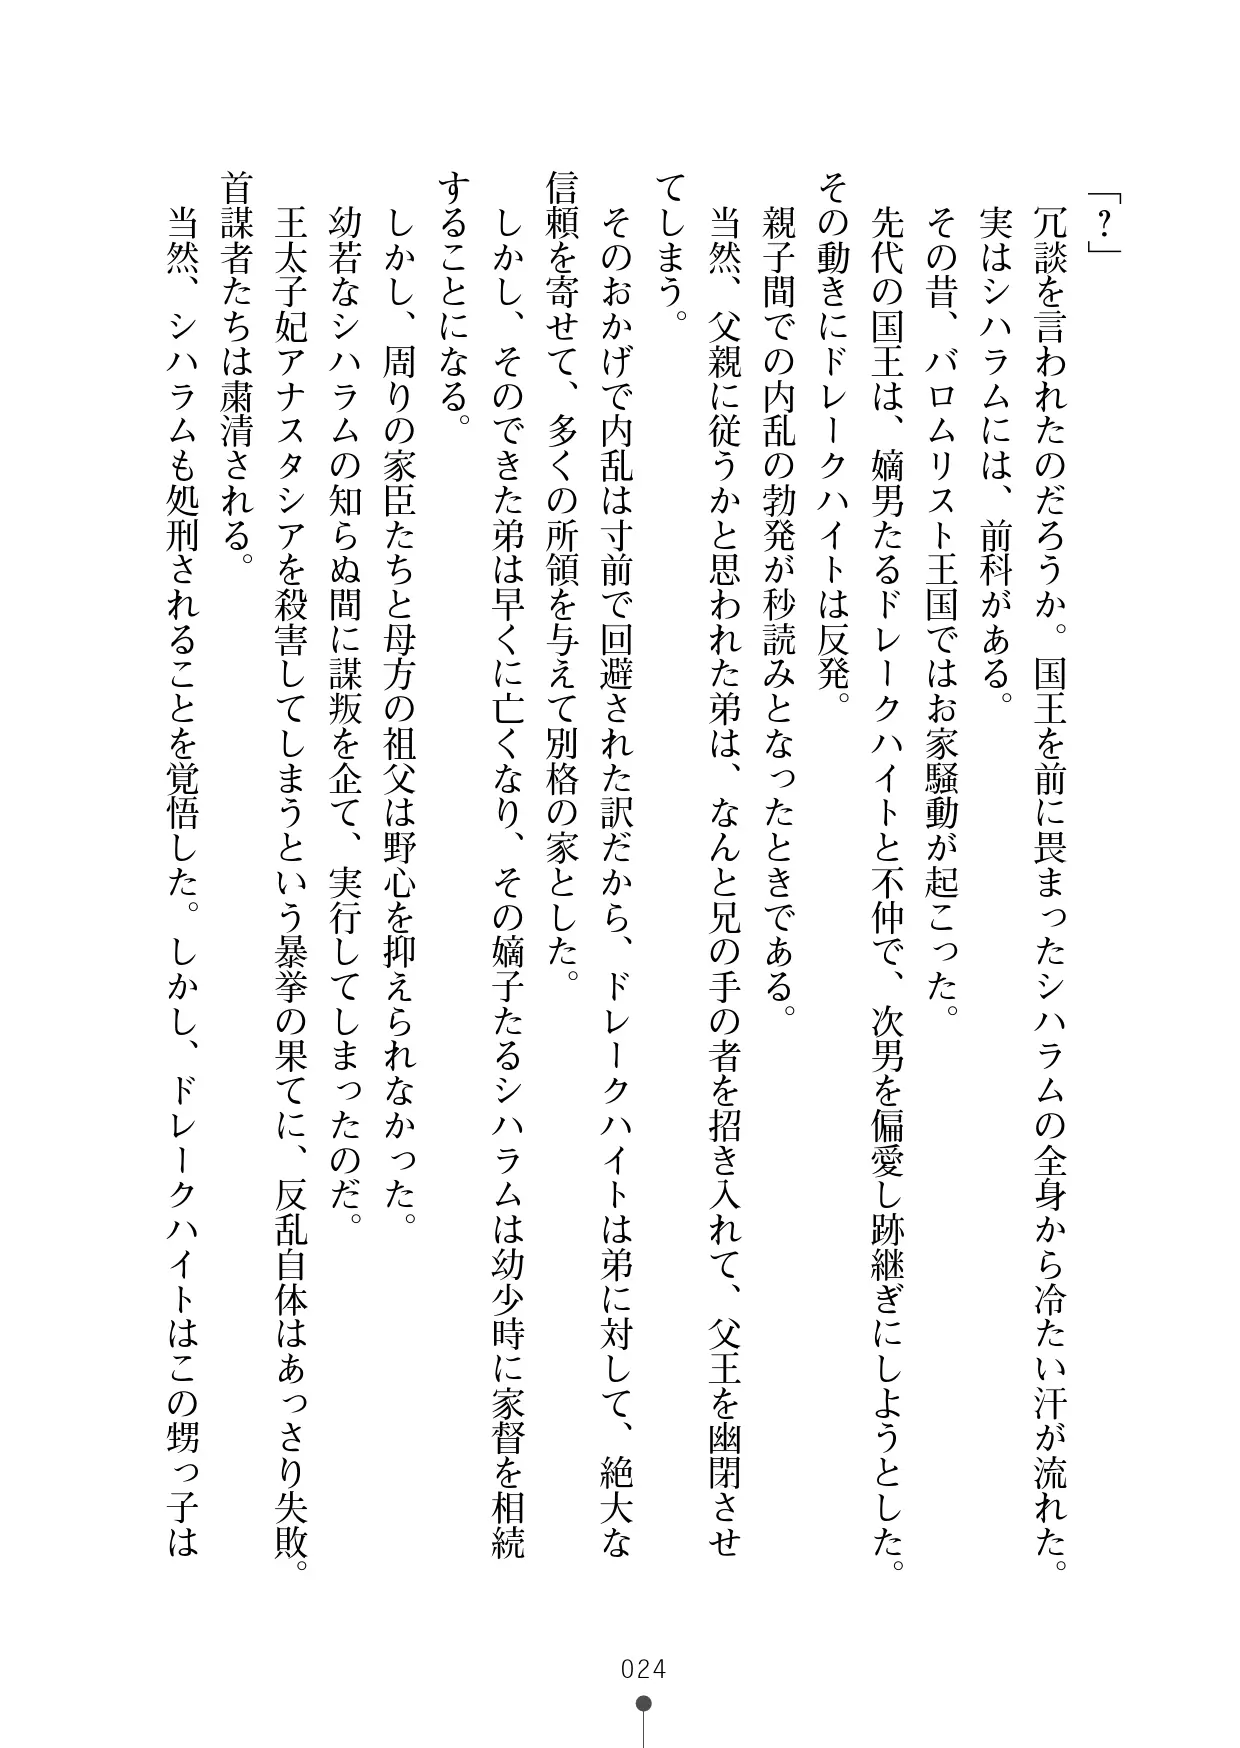 「？」
　冗談を言われたのだろうか。国王を前に畏まったシハラムの全身から冷たい汗が流れた。
　実はシハラムには、前科がある。
　その昔、バロムリスト王国ではお家騒動が起こった。
　先代の国王は、嫡男たるドレークハイトと不仲で、次男を偏愛し跡継ぎにしようとした。
その動きにドレークハイトは反発。
　親子間での内乱の勃発が秒読みとなったときである。
　当然、父親に従うかと思われた弟は、なんと兄の手の者を招き入れて、父王を幽閉させ
てしまう。
　そのおかげで内乱は寸前で回避された訳だから、ドレークハイトは弟に対して、絶大な
信頼を寄せて、多くの所領を与えて別格の家とした。
　しかし、そのできた弟は早くに亡くなり、その嫡子たるシハラムは幼少時に家督を相続
することになる。
　しかし、周りの家臣たちと母方の祖父は野心を抑えられなかった。
　幼若なシハラムの知らぬ間に謀叛を企て、実行してしまったのだ。
　王太子妃アナスタシアを殺害してしまうという暴挙の果てに、反乱自体はあっさり失敗。
首謀者たちは粛清される。
　当然、シハラムも処刑されることを覚悟した。しかし、ドレークハイトはこの甥っ子は
024